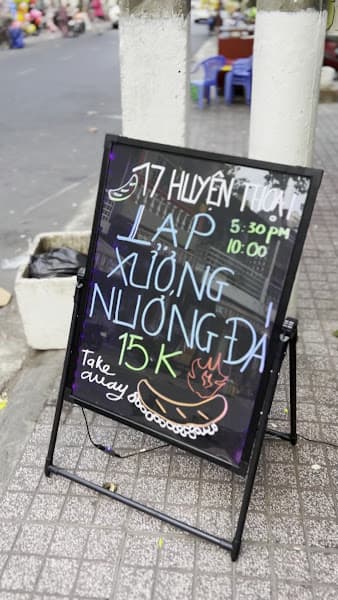 17 HUYỆN TOẠI
LẠP
5:30 PM
10:00
XƯỞNG
NƯỚNG ĐÁ
15.K
Take
away